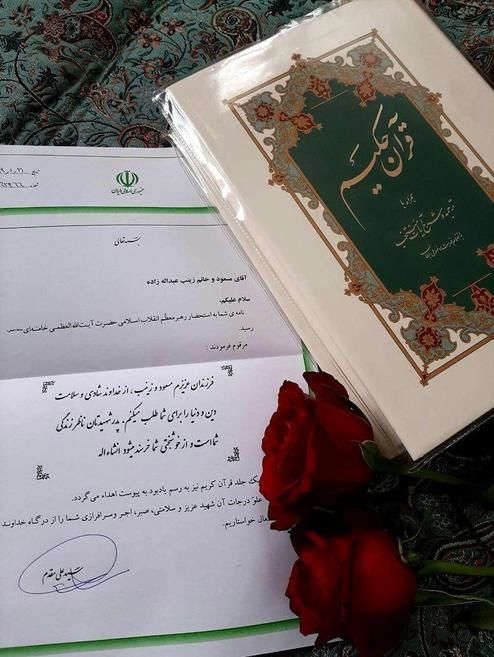 جمهوری اسلامی ایران
بسمه تعالی
آقای مسعود و خانم زینب عبداله زاده
سلام علیکم،
نامه ی شما به استحضار رهبر معظّم انقلاب اسلامی حضرت آیت‌الله‌العظمی خامنه‌ای
رسید.
مرقوم فرمودند :
فرزندان عزیزم مسعود و زینب، از خداوند شادی و سلامت
دین و دنیا را برای شما طلب میکنم. پدر شهیدتان ناظر زندگی
شماست و از خوشبختی شما خرسند میشود انشاءاله
یک جلد قرآن کریم نیز به رسم یادبود به پیوست اهداء می‌گردد.
علوّ درجات آن شهید عزیز و سلامتی، صبر، اجر و سرافرازی شما را از درگاه خداوند
متعال خواستاریم.
سید علی مقدم
قرآن حکیم
همراه با